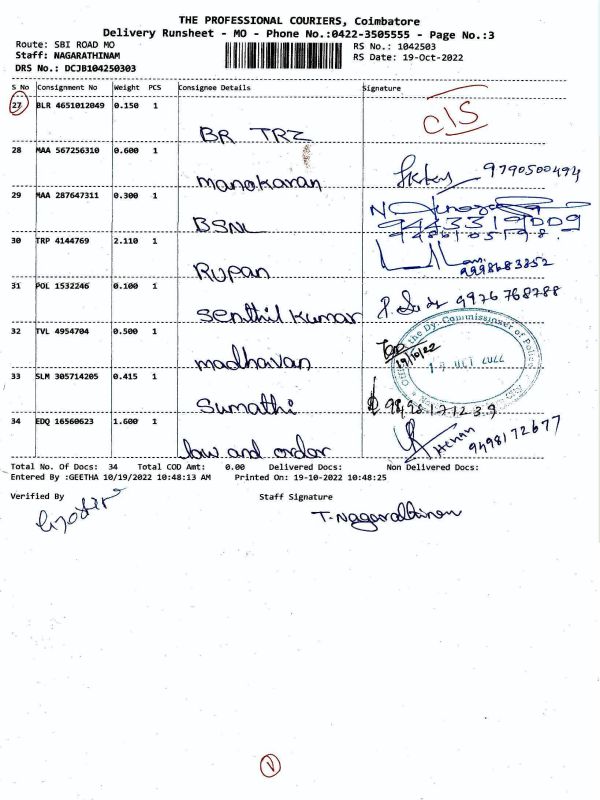 THE PROFESSIONAL COURIERS, Coimbatore
Delivery Runsheet - MO - Phone No.:0422-3505555 - Page No.:3
Route: SBI ROAD MO RS No.: 1042503
Staff: NAGARATHINAM RS Date: 19-Oct-2022
DRS No.: DCJB104250303
S No Consignment No Weight PCS Consignee Details Signature
27 BLR 4651012049 0.150 1 C/S
BR TRZ
28 MAA 567256310 0.600 1 9790500494
manakaran
29 MAA 287647311 0.300 1
9443319009
BSNL
30 TRP 4144769 2.110 1
Rupan
31 POL 1532246 0.100 1 9976768788
Senthil kumar
32 TVL 4954704 0.500 1 the Dy. Commissioner of Police
19/10/22
OCT 2022
madhavan
33 SLM 305714205 0.415 1
Sumathi 9498171239
34 EDQ 16560623 1.600 1 9498172677
law and order
Total No. Of Docs: 34 Total COD Amt: 0.00 Delivered Docs: Non Delivered Docs:
Entered By :GEETHA 10/19/2022 10:48:13 AM Printed On: 19-10-2022 10:48:25
Verified By Staff Signature
T. Nagarathinam